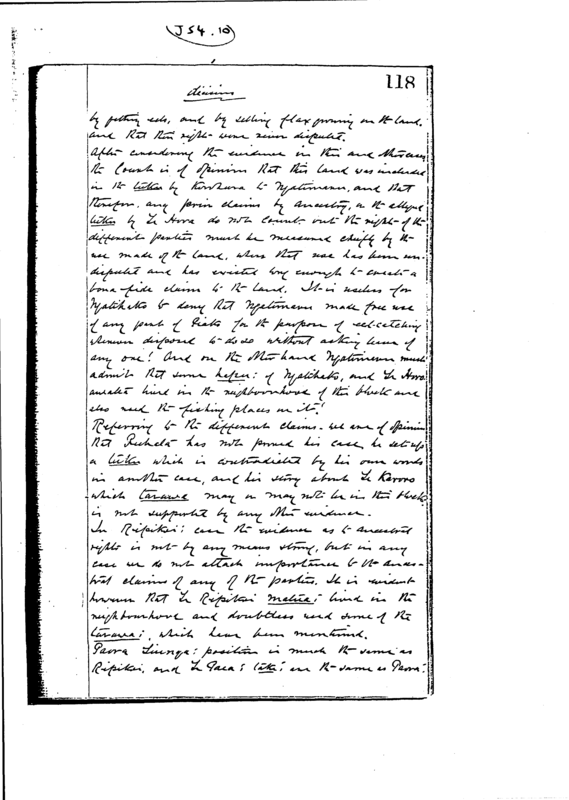 J54.10
118
decision
by getting eels, and by selling flax growing on the land,
and that their rights were never disputed.
After considering the evidence in this and other cases
the Court is of opinion that this land was included
in the by to and that
therefore any prior claims by ancestry, or the alleged
by Te Hora do not count but the rights of the
different parties must be measured chiefly by the
use made of the land, where that use has been un-
disputed and has existed long enough to create a
bona-fide claim to the land. It is useless for
Ngatiheke to deny that made free use
of any part of for the purpose of eel-catching
whenever disposed to do so without asking leave of
any one! And on the other hand must
admit that some hapus of and Te Hora
lived in the neighbourhood of this block and
also used the fishing places on it.
Referring to the different claims. we are of opinion
that has not proved his case, he set up
a which is contradicted by his own words
in another case, and his story about Te Karoro
which tarawa may or may not be in this block
is not supported by any other evidence.
In case the evidence as to ancestral
rights is not by any means strong, but in any
case we do not attach importance to the ances-
tral claims of any of the parties. It is evident
however that Te matua lived in the
neighbourhood and doubtless used some of the
tarawas, which have been mentioned.
Paora position is much the same as
and Te take are the same as Paora's